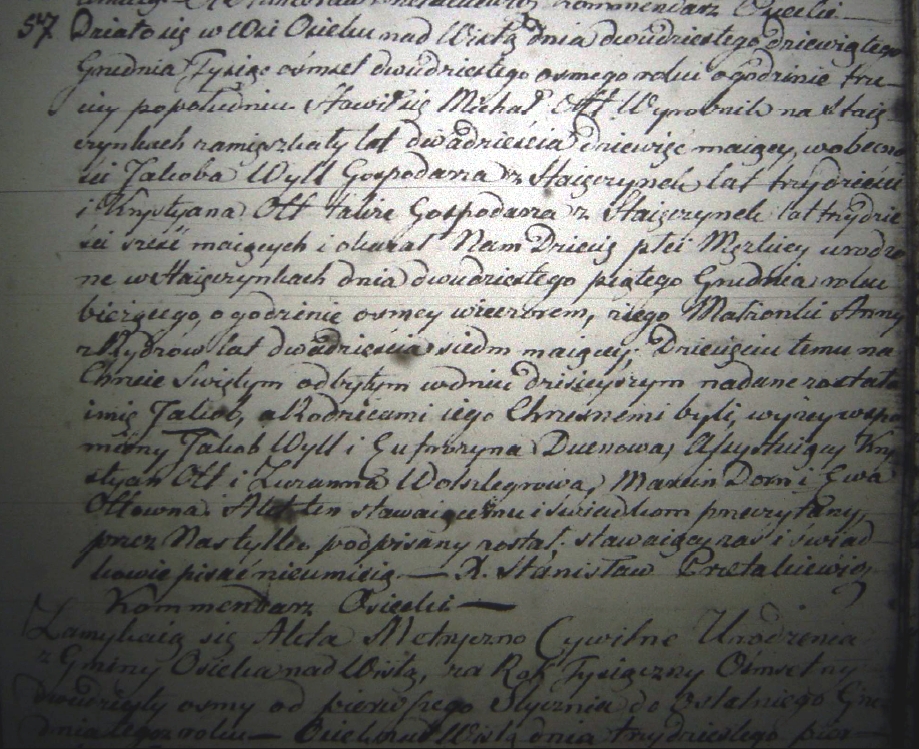 Kommendarz Osiecki
57 Działo się w Wsi Osieku nad Wisłą dnia dwudziestego dziewiątego
Grudnia Tysiąc ośmset dwudziestego osmego roku o godzinie trze-
ciey popołudniu. Stawił się Michał Ott Wyrobnik na Staię-
czynkach zamięszkały lat dwadzieścia dziewięć maiący, w obecno
ści Jakoba Wyll Gospodarza z Staięczynek lat trzydzieści
i Krystyana Ott także Gospodarza z Staięczynek lat trzydzie
ści sześć maiących i okazał Nam Dziecię płci Męzkiey urodzo
ne w Staięczynkach dnia dwudziestego piątego Grudnia roku
bieżącego, o godzinie osmey wieczorem, z iego Małżonki Anny
z Rydzów lat dwadzieścia siedm maiącey. Dziecięciu temu na
Chrcie Swiętym odbytym w dniu dzisieyszym nadane zostało
imię Jakób, a Rodzicami iego Chrzesnemi byli, wyżey wspo
miony Jakob Wyll i Gutrozyna Duenowa, Assystuiący Kry
styan Ott i Zuzanna Wolszlegrowa, Marcin Dorn i Ewa
Ottowna. Akt ten stawaiącemu i swiadkom przeczytany,
przez Nas tylko podpisany został. stawaiący zaś i swiad
kowie pisać nieumieią — X. Stanisław Przetakiewicz
Kommendarz Osiecki —
Zamykaią się Akta Metryczno Cywilne Urodzenia
z Gminy Osieka nad Wisłą, za Rok Tysiączny Ośmsetny
dwudziesty osmy od pierwszego Stycznia do ostatniego Gru
dnia tegoz roku — Osiek nad Wisłą dnia trzydziestego pier—